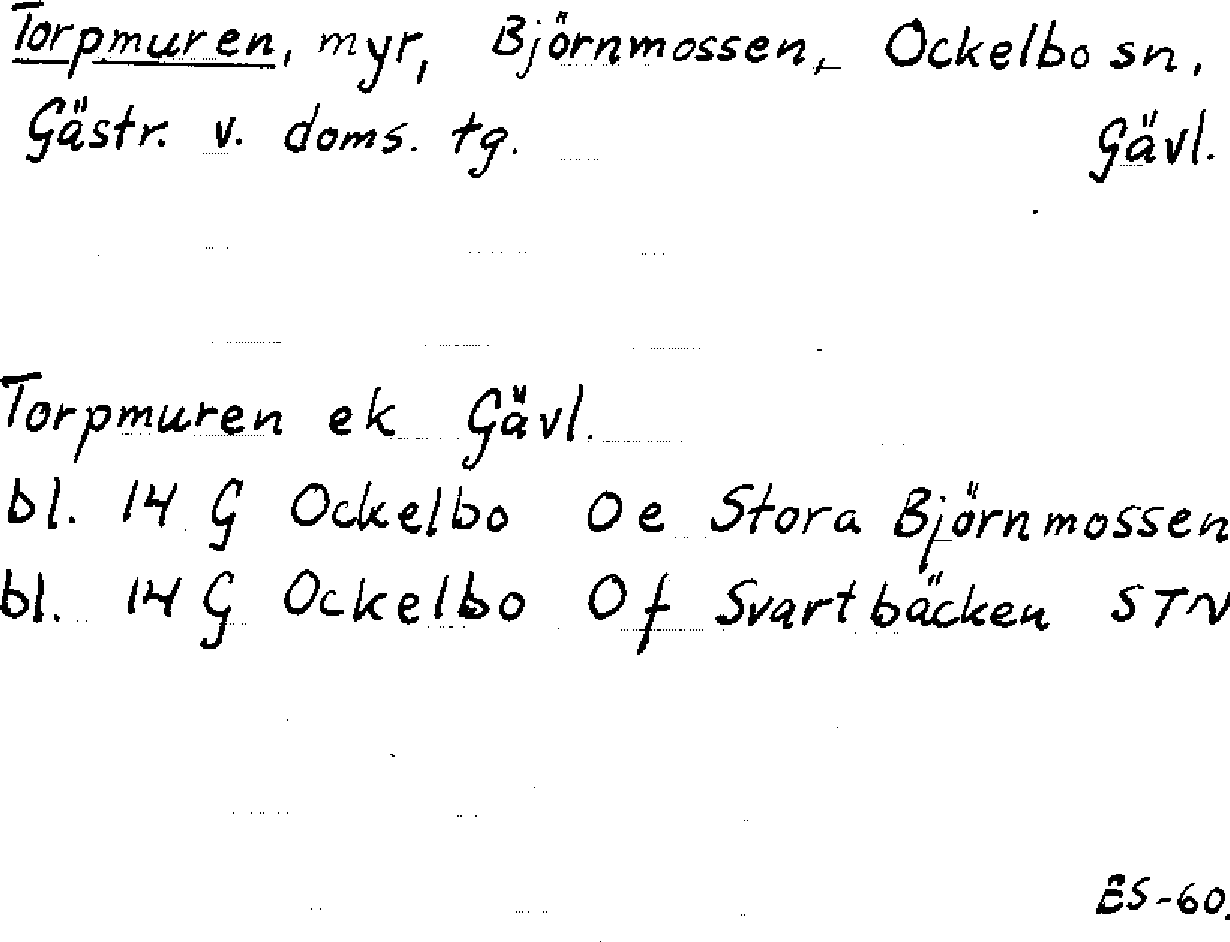 Torpmuren, myr, Björnmossen, Ockelbo sn,
Gästr. v. doms. tg. Gävl.
Torpmuren ek Gävl.
bl. 14 G Ockelbo 0e Stora Björnmossen
bl. 14 G Ockelbo 0f Svartbäcken STN
ES-60.